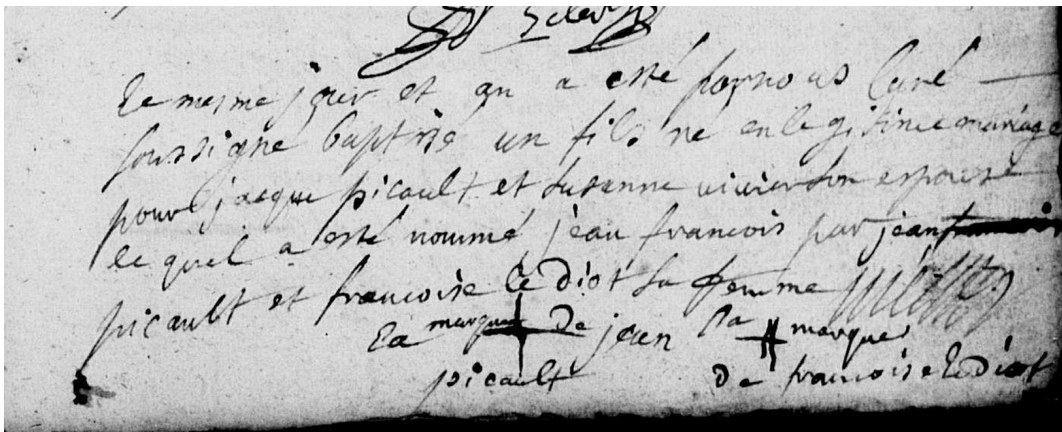 le mesme jour et an a esté par nous Curé
soussigné baptisé un fils né en legitime mariage
pour jacque picault et susanne vivier son espouse
le quel a esté nommé jean francois par jean
picault et francoise le diot sa femme
la marque de jean la marque
picault de francoise le diot